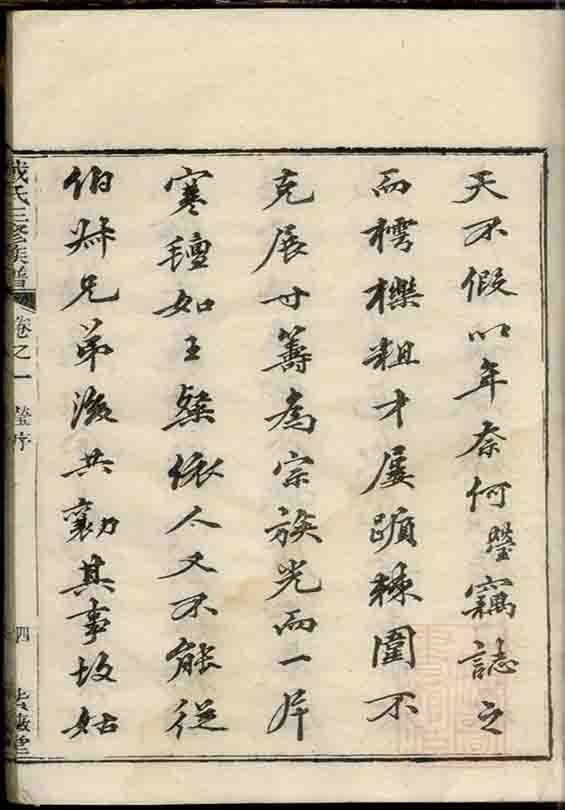 天不假以年奈何瑩竊誌之
而樗櫟粗才屢躓棘圍不
克展寸籌為宗族光而一片
寒氊如王粲依人又不能從
伯叔兄弟後共襄其事故姑
戴氏三修族譜
卷之一 瑩序
四